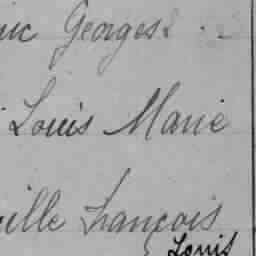 uc Georges
Louis Marie
ille François
Louis